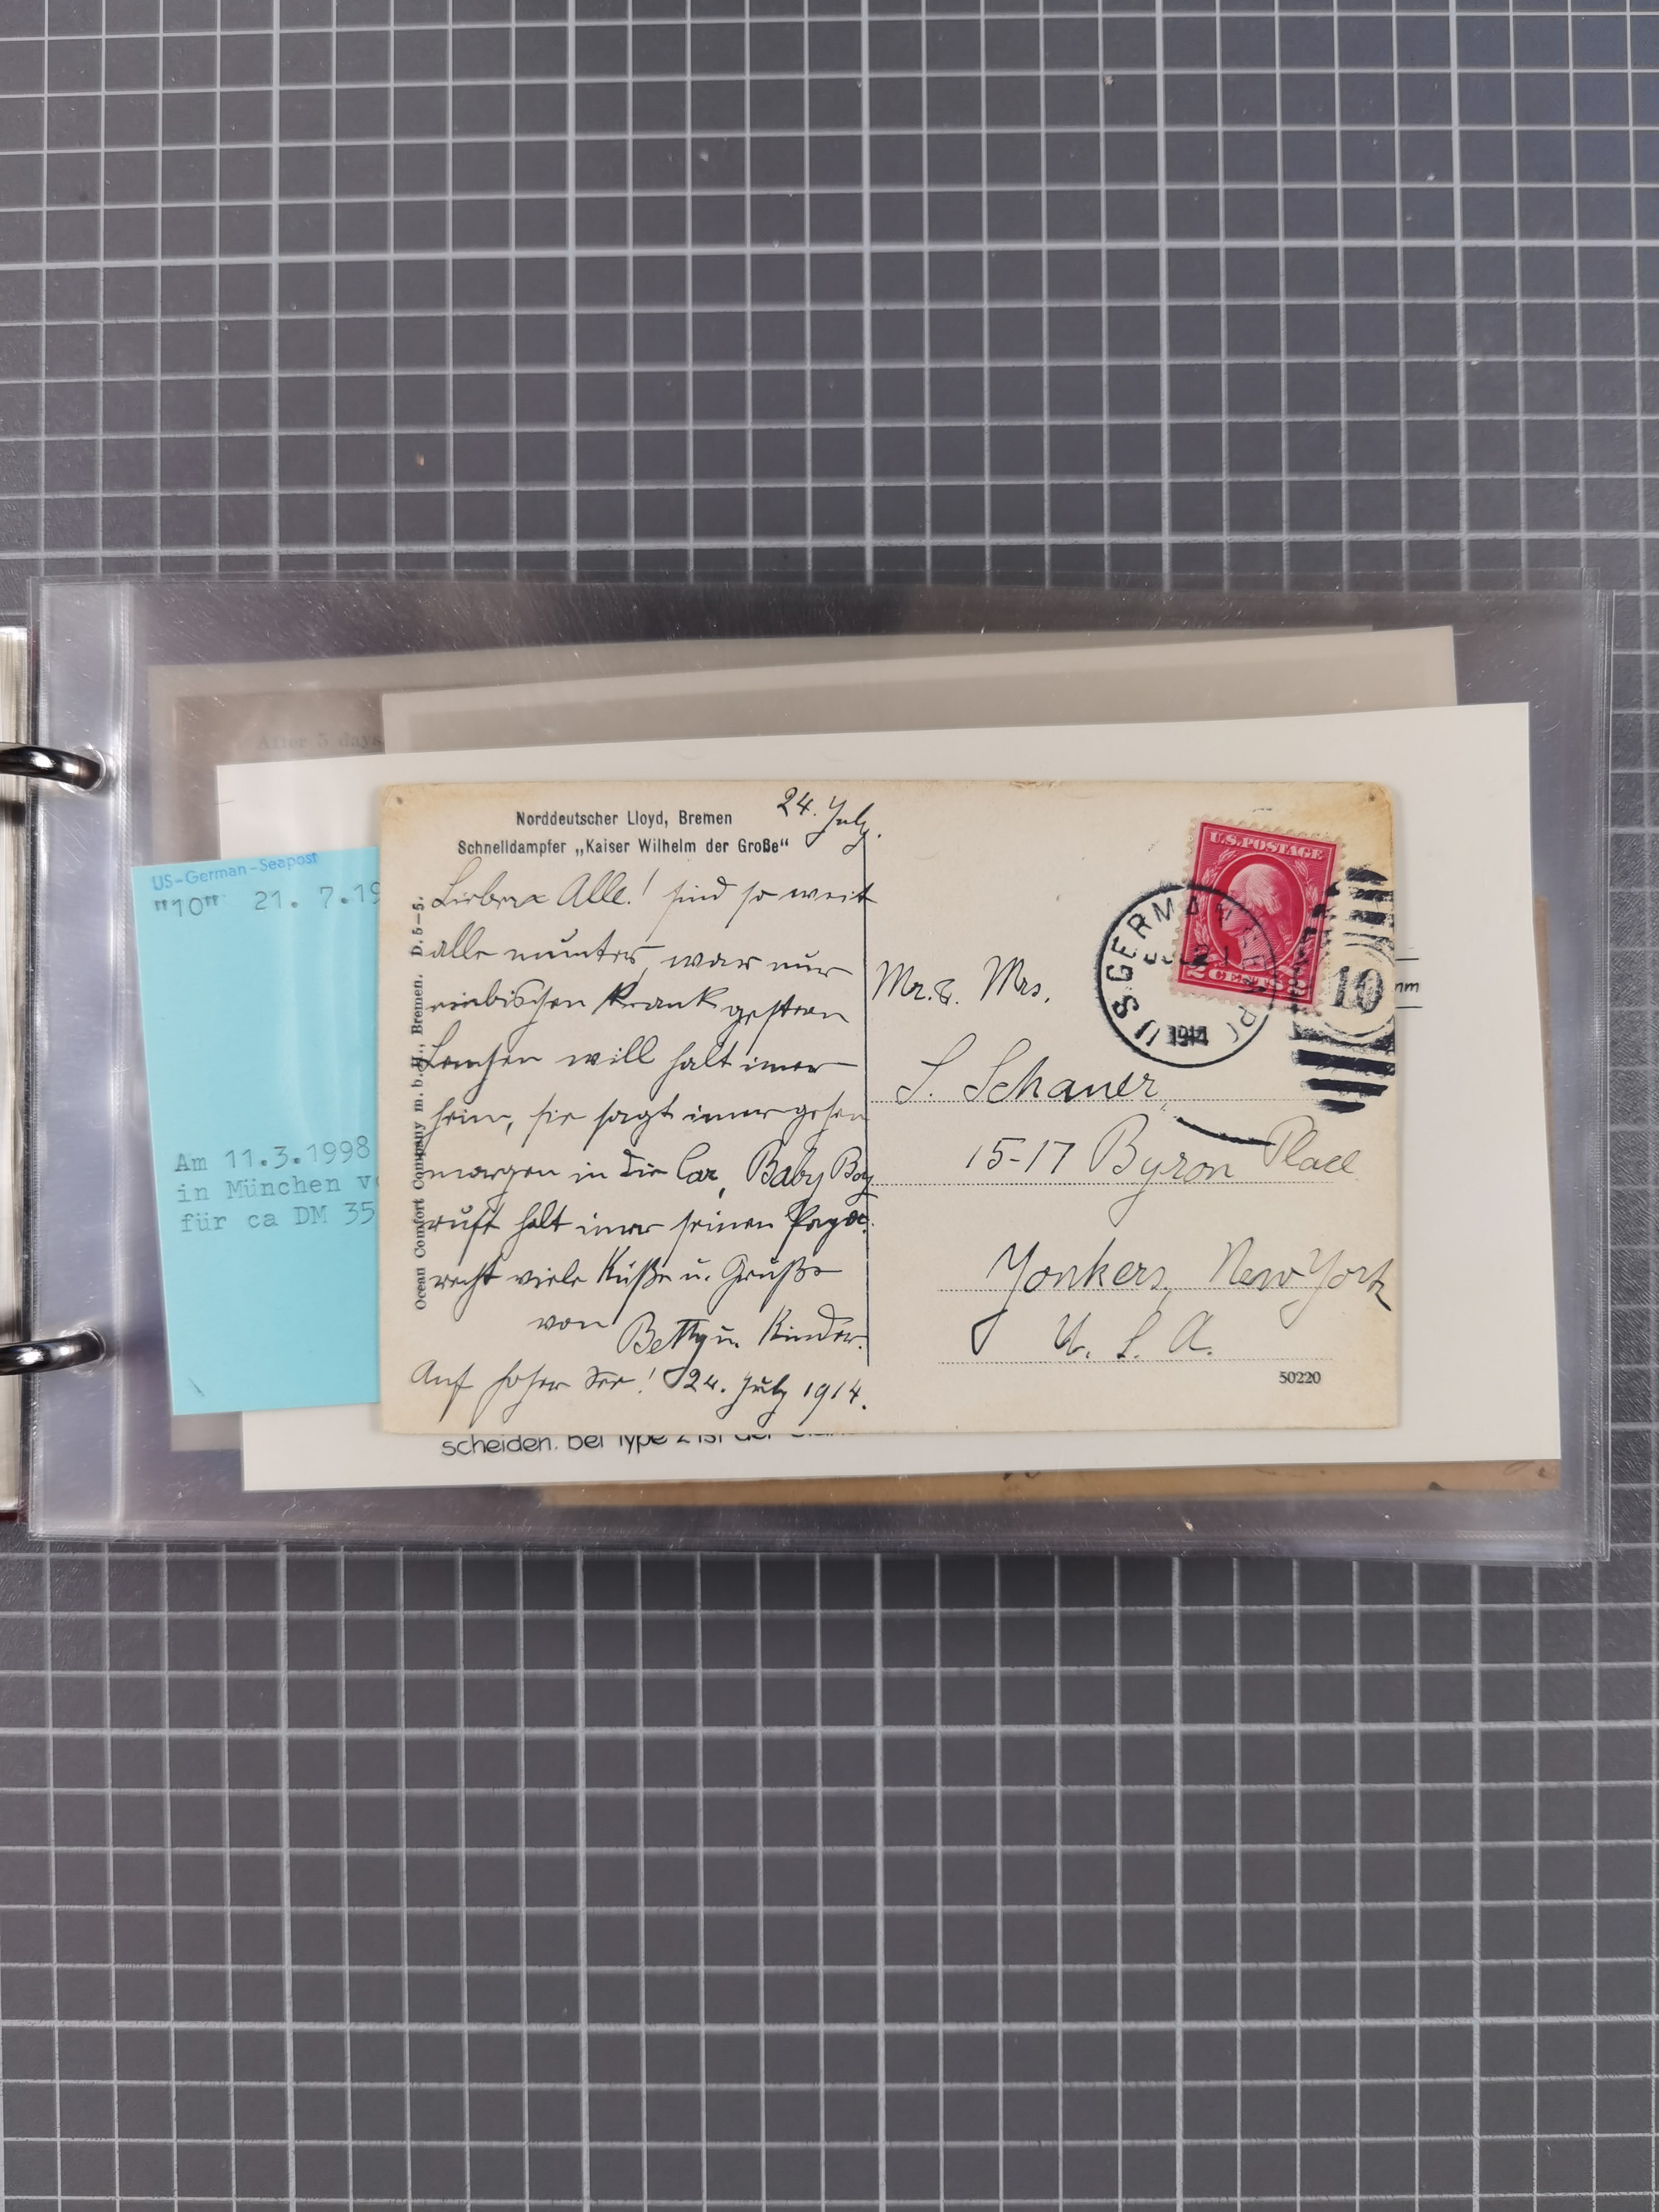 After 5 days
US-German-Seapost
"10" 21. 7.19
Am 11.3.1998
in München v
für ca DM 35
Norddeutscher Lloyd, Bremen
Schnelldampfer „Kaiser Wilhelm der Große“
24. July.
Ocean Comfort Company m. b. H., Bremen. D. 5–5.
Alle! sind so weit
alle munter, war nur
einbischen krank gestern
will halt imer
heim, sie sagt imer gehen
morgen in die Car, Baby Boy
ruft halt imer seinen Papa.
recht viele Küße u. Grüße
von Betty u. Kinder.
Auf hoher See! 24. July 1914.
U.S. POSTAGE
2 CENTS 2
US GERMAN
21
1914
10
Mr. & Mrs.
S. Schauer
15-17 Byron Place
Yonkers, New York
U. S. A.
50220
mm
scheiden. Bei Type 2 ist der